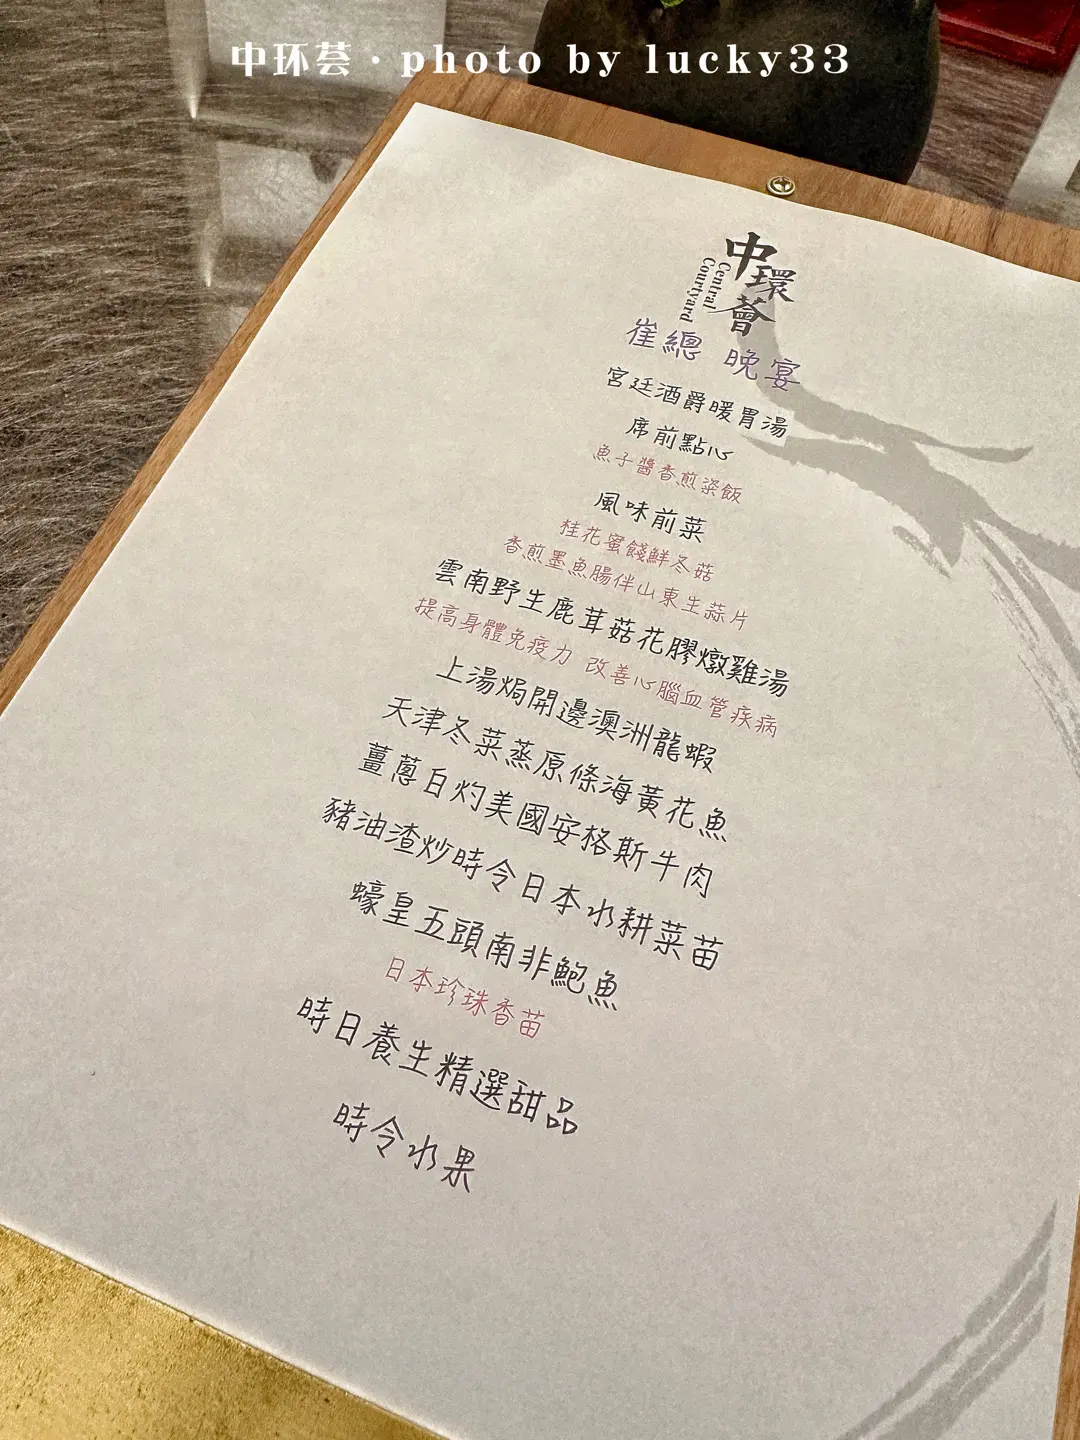 中环荟·photo by lucky33
中環薈
Central
Courtyard
崔總 晚宴
宮廷酒爵暖胃湯
席前點心
魚子醬香煎粢飯
風味前菜
桂花蜜餞鮮冬菇
香煎墨魚腸伴山東生蒜片
雲南野生鹿茸菇花膠燉雞湯
提高身體免疫力 改善心腦血管疾病
上湯焗開邊澳洲龍蝦
天津冬菜蒸原條海黃花魚
薑蔥白灼美國安格斯牛肉
豬油渣炒時令日本水耕菜苗
蠔皇五頭南非鮑魚
日本珍珠香苗
時日養生精選甜品
時令水果